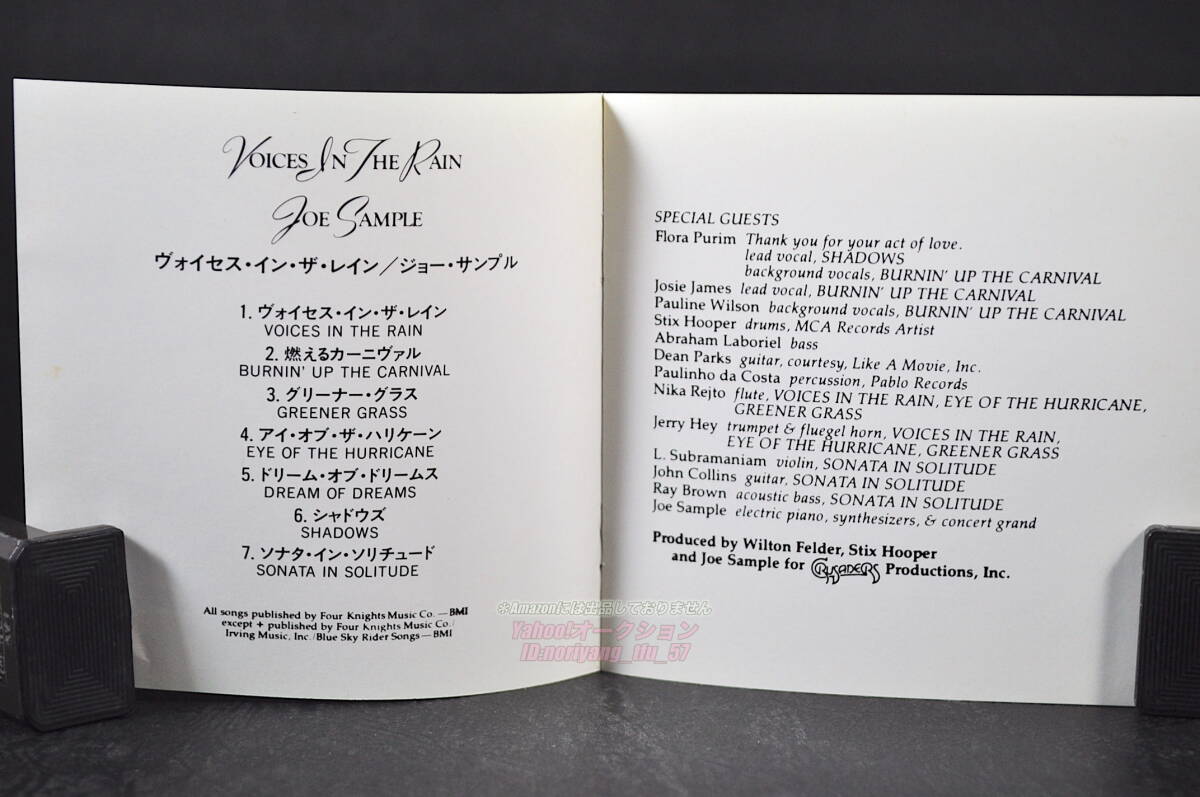 VOICES IN THE RAIN
JOE SAMPLE
ヴォイセス・イン・ザ・レイン／ジョー・サンプル
1. ヴォイセス・イン・ザ・レイン
VOICES IN THE RAIN
2. 燃えるカーニヴァル
BURNIN' UP THE CARNIVAL
3. グリーナー・グラス
GREENER GRASS
4. アイ・オブ・ザ・ハリケーン
EYE OF THE HURRICANE
5. ドリーム・オブ・ドリームス
DREAM OF DREAMS
6. シャドウズ
SHADOWS
7. ソナタ・イン・ソリチュード
SONATA IN SOLITUDE
All songs published by Four Knights Music Co.—BMI
except + published by Four Knights Music Co./
Irving Music, Inc./Blue Sky Rider Songs—BMI
SPECIAL GUESTS
Flora Purim Thank you for your act of love.
lead vocal, SHADOWS
background vocals, BURNIN' UP THE CARNIVAL
Josie James lead vocal, BURNIN' UP THE CARNIVAL
Pauline Wilson background vocals, BURNIN' UP THE CARNIVAL
Stix Hooper drums, MCA Records Artist
Abraham Laboriel bass
Dean Parks guitar, courtesy, Like A Movie, Inc.
Paulinho da Costa percussion, Pablo Records
Nika Rejto flute, VOICES IN THE RAIN, EYE OF THE HURRICANE,
GREENER GRASS
Jerry Hey trumpet & fluegel horn, VOICES IN THE RAIN,
EYE OF THE HURRICANE, GREENER GRASS
L. Subramaniam violin, SONATA IN SOLITUDE
John Collins guitar, SONATA IN SOLITUDE
Ray Brown acoustic bass, SONATA IN SOLITUDE
Joe Sample electric piano, synthesizers, & concert grand
Produced by Wilton Felder, Stix Hooper
and Joe Sample for CRUSADERS Productions, Inc.
※Amazonには出品しておりません
Yahoo!オークション
ID:noriyang_tfu_57